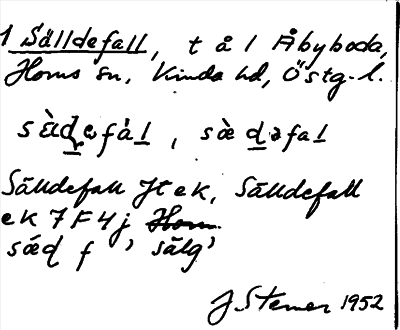 1 Sälldefall, t å l Åbyboda,
Horns sn, Kinda hd, Östg. l.
sæ̀ḍefàl, sæ̀ḍəfal
Sälldefall Hek, Sälldefall
ek 7F4j Horn.
sǽḍ f 'sälg'
J Stemer 1952